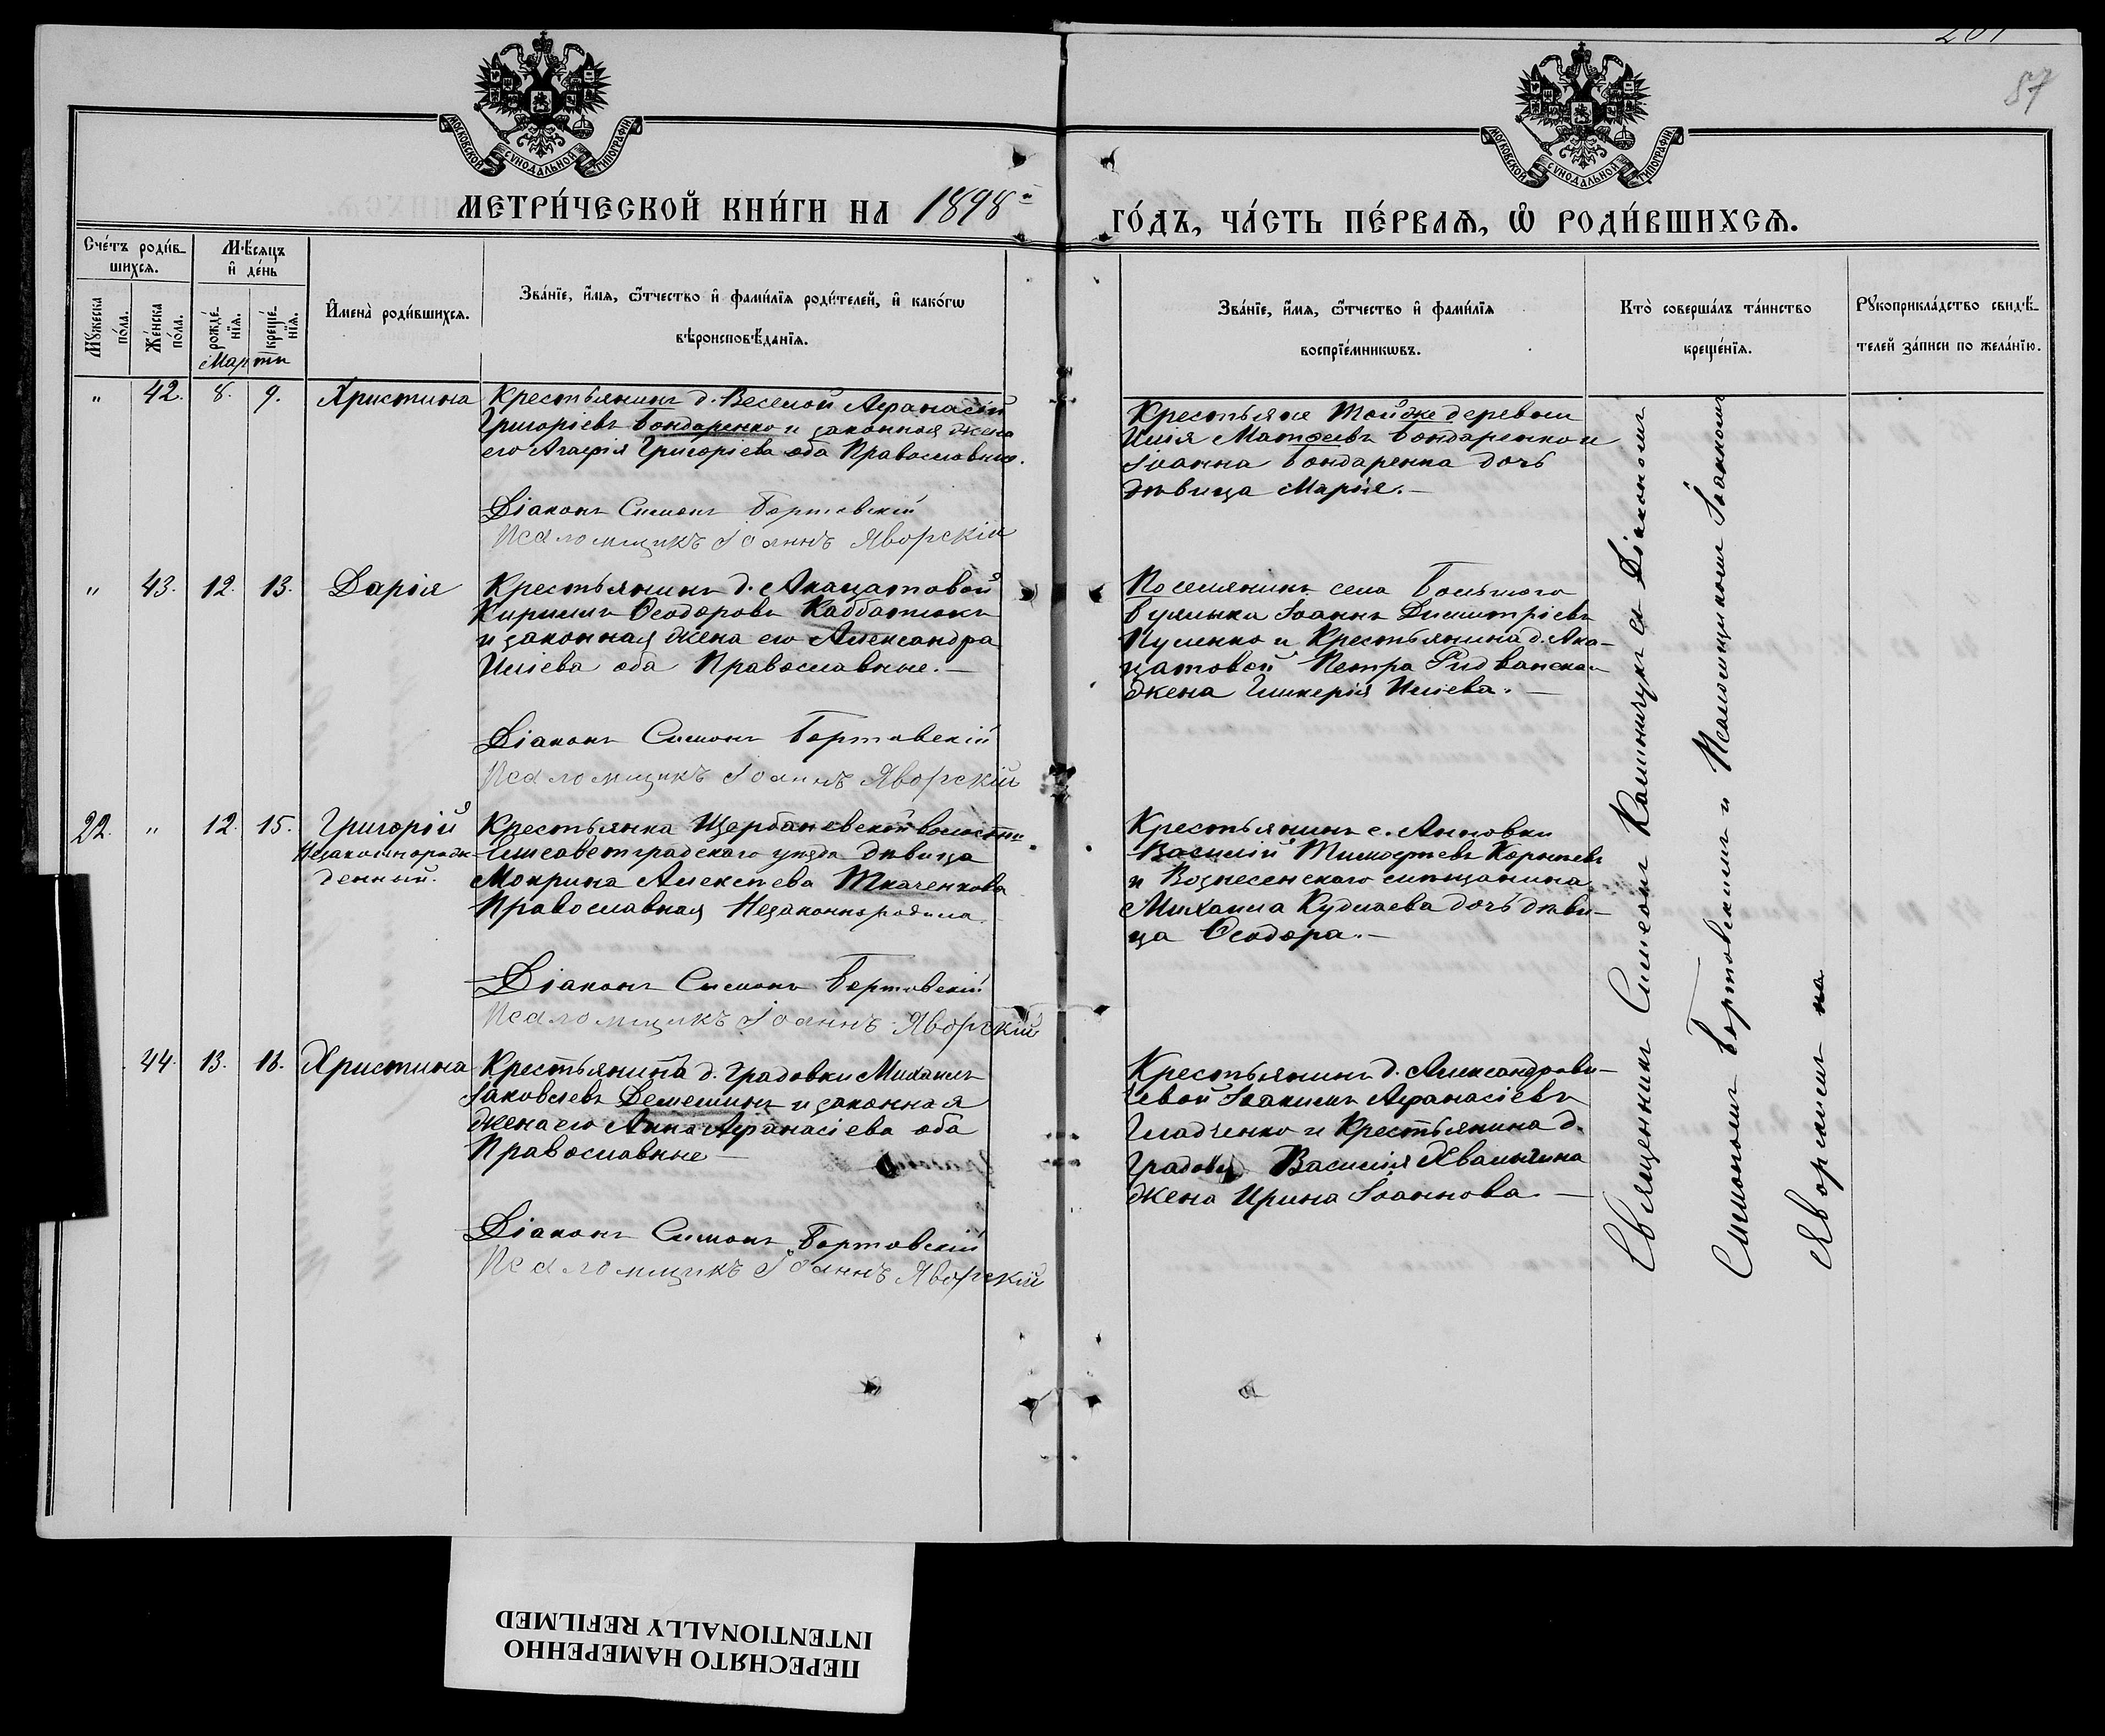 87
МОСКОВСКОЙ СѴНОДАЛЬНОЙ ТИПОГРАФІИ
МОСКОВСКОЙ СѴНОДАЛЬНОЙ ТИПОГРАФІИ
МЕТРИ́ЧЕСКОЙ КНИ́ГИ НА 1898
ГО́ДЪ, ЧА́СТЬ ПЕ́РВАѦ, Ѡ҆ РОДИ́ВШИХСѦ.
Сче́тъ роди́в-
шихсѧ.
Мꙋ́жеска
по́ла.
Же́нска
по́ла.
Мѣ́сѧцъ
и҆ де́нь
рожде́-
нїѧ.
креще́-
нїѧ.
И҆мена̀ роди́вшихсѧ.
Зва́нїе, и҆́мѧ, ѻ҆́тчество и҆ фами́лїѧ роди́телей, и҆ како́гѡ
вѣроисповѣ́данїѧ.
Зва́нїе, и҆́мѧ, ѻ҆́тчество и҆ фами́лїѧ
воспрїе́мникѡвъ.
Кто̀ соверша́лъ та́инство
креще́нїѧ.
Рꙋкоприкла́дство свидѣ́-
телей за́писи по жела́нїю.
Мартъ
" 42. 8. 9. Христина
Крестьянинъ д. Веселой Афанасій
Григоріевъ Бондаренко и законная жена
его Агафія Григоріева оба Православные.
Діаконъ Симонъ Бортовскій
Псаломщикъ Іоаннъ Яворскій
Крестьяне тойже деревни
Илія Матѳеевъ Бондаренко и
Іоанна Бондаренка дочь
дѣвица Марія.—
" 43. 12. 13. Дарія
Крестьянинъ д. Акацатовой
Кириллъ Ѳеодоровъ Каббатюкъ
и законная жена его Александра
Иліева оба Православные.—
Діаконъ Симонъ Бортовскій
Псаломщикъ Іоаннъ Яворскій
Поселянинъ села Большого
Буялыка Іоаннъ Димитріевъ
и Крестьянина д. Ака-
цатовой Петра
жена Гликерія Иліева.—
22. " 12. 15. Григорій
Незаконнорож-
денный.
Крестьянка Щербановской волости
Елисаветградскаго уѣзда дѣвица
Мокрина Алексѣева Ткаченкова
Православная Незаконнородила
Діаконъ Симонъ Бортовскій
Псаломщикъ Іоаннъ Яворскій
Крестьянинъ с. Анновки
Василій Тимоѳеевъ
и Вознесенскаго мѣщанина
Михаила Кудлаева дочь дѣви-
ца Ѳеодора.—
44. 13. 16. Христина
Крестьянинъ д. Градовки Михаилъ
Іаковлевъ Демешинъ и законная
жена его Анна Афанасіева оба
Православные—
Діаконъ Симонъ Бортовскій
Псаломщикъ Іоаннъ Яворскій
Крестьянинъ д. Александрови-
чевой Іоакимъ Афанасіевъ
Гладченко и Крестьянина д.
Василія
жена Ирина Іоаннова.—
Священникъ Симеонъ съ Діакономъ
Симономъ Бортовскимъ и Псаломщикомъ Іоанномъ
Яворскимъ
ПЕРЕСНЯТО НАМЕРЕННО
INTENTIONALLY REFILMED